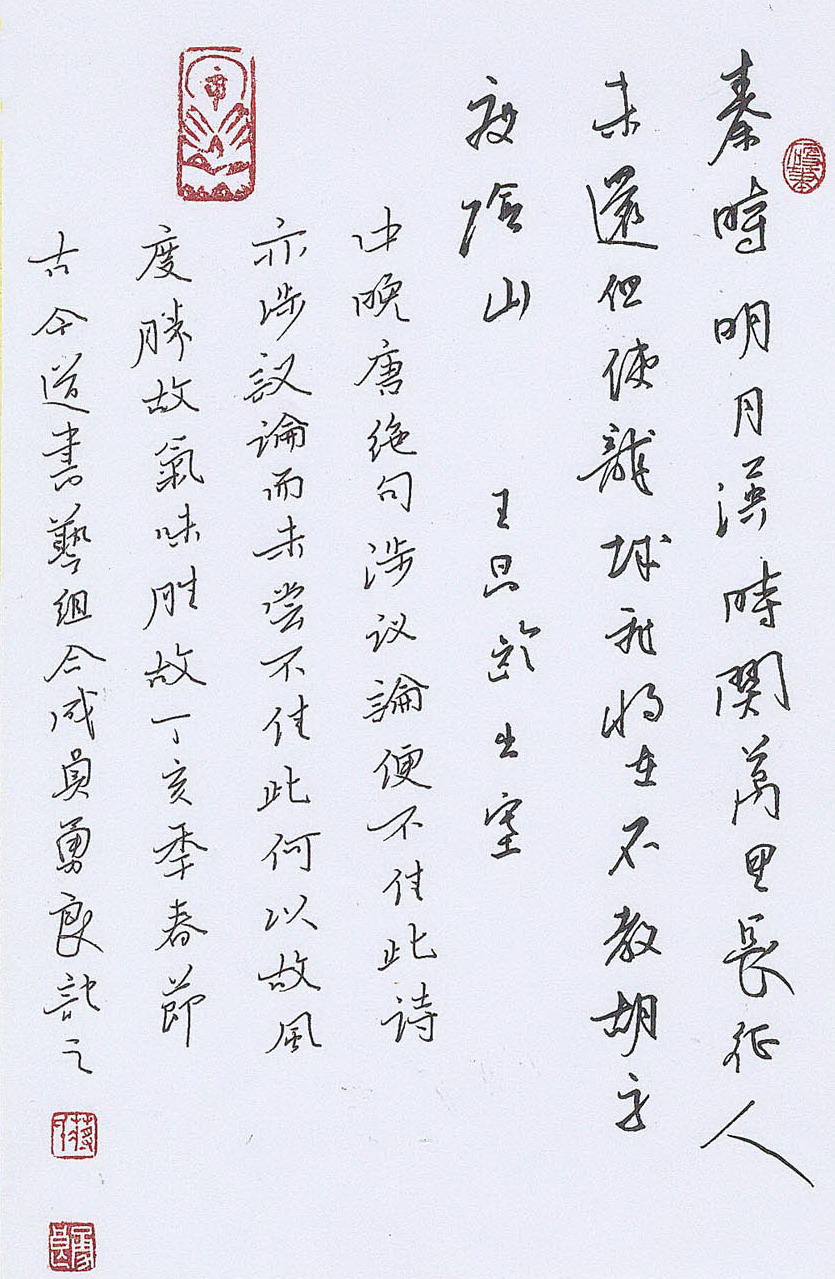 秦時明月漢時関萬里長征人
未還但使龍城飛將在不教胡馬
度陰山
王昌齡出塞
中晚唐绝句涉议論便不佳此詩
亦涉議論而未尝不佳此何以故風
度勝故氣味胜故丁亥年春節
古今道書藝組合成員勇良記之